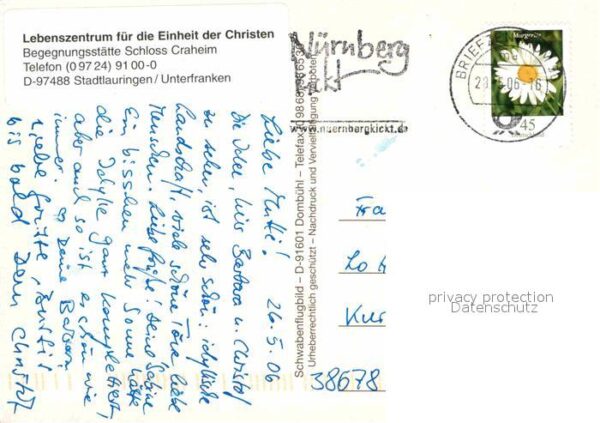 Lebenszentrum für die Einheit der Christen
Begegnungsstätte Schloss Craheim
Telefon (0 97 24) 91 00-0
D-97488 Stadtlauringen / Unterfranken
Nürnberg
kickt.
www.nuernbergkickt.de
BRIEFZ
06
16
Margerite
45
Schwabenflugbild – D-91601 Dombühl – Telefax 09868
Urheberrechtlich geschützt – Nachdruck und Vervielfältigung verboten
Liebe Mutti! 26.5.06
die Idee, hier Barbara u. Christof
zu sehen, ist sehr schön: idyllische
Landschaft, viele schöne liebe
Menschen. Liebe Grüße! Deine Sabine
Ein bisschen mehr Sonne hätte
die Idylle ganz komplettiert,
aber auch so ist es schön wie
immer. Deine Barbara
Liebe Grüße,
bis bald Dein Christof
Fra
Lo
Kur
38678
privacy protection
Datenschutz